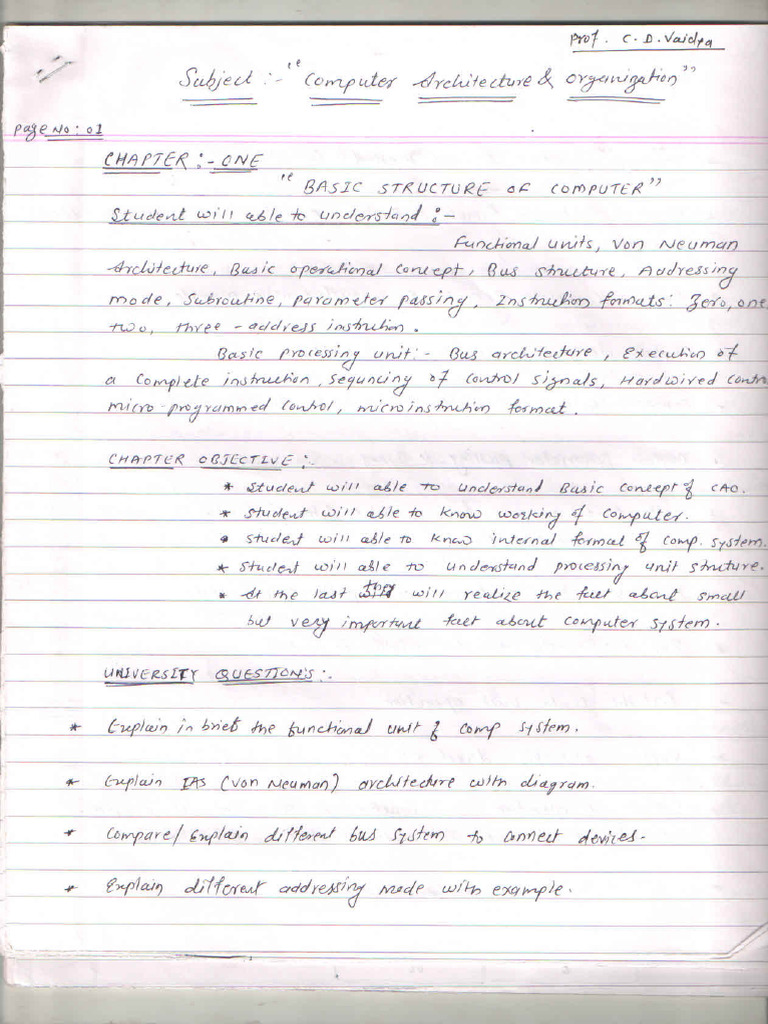 Prof. C.D. Vaidya
Subject :- "Computer Architecture & organization"
Page No: 01
CHAPTER :- ONE
"BASIC STRUCTURE OF COMPUTER"
Student will able to understand :-
Functional units, Von Neuman
Architecture, Basic operational concept, Bus structure, Addressing
mode, Subroutine, parameter passing, Instruction formats: Zero, one,
two, three - address instruction.
Basic processing unit:- Bus architecture, Execution of
a complete instruction, sequncing of control signals, Hardwired contro
micro-programmed control, microinstrution format.
CHAPTER OBJECTIVE :-
* Student will able to understand Basic concept of CAO.
* Student will able to know working of computer.
* Student will able to know internal format of comp. system.
* Student will able to understand processing unit structure.
* At the last they will realize the fact about small
but very important fact about computer system.
UNIVERSITY QUESTION'S :-
* Explain in brief the functional unit of comp system.
* Explain IAS (Von Neuman) architecture with diagram.
* Compare/Explain different bus system to connect devices.
* Explain different addressing mode with example.